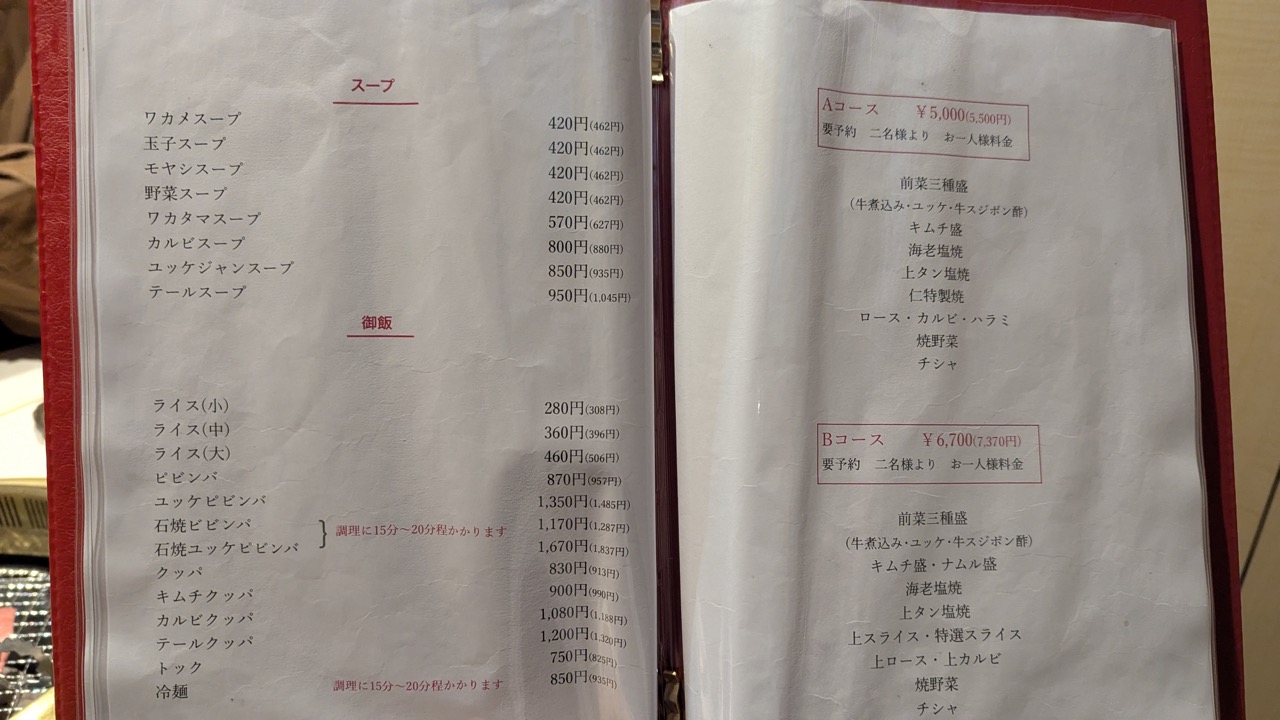 スープ
ワカメスープ 420円(462円)
玉子スープ 420円(462円)
モヤシスープ 420円(462円)
野菜スープ 420円(462円)
ワカタマスープ 570円(627円)
カルビスープ 800円(880円)
ユッケジャンスープ 850円(935円)
テールスープ 950円(1,045円)
御飯
ライス(小) 280円(308円)
ライス(中) 360円(396円)
ライス(大) 460円(506円)
ビビンバ 870円(957円)
ユッケビビンバ 1,350円(1,485円)
石焼ビビンバ 1,170円(1,287円)
石焼ユッケビビンバ 1,670円(1,837円)
} 調理に15分～20分程かかります
クッパ 830円(913円)
キムチクッパ 900円(990円)
カルビクッパ 1,080円(1,188円)
テールクッパ 1,200円(1,320円)
トック 750円(825円)
冷麺 調理に15分～20分程かかります 850円(935円)
Aコース ￥5,000(5,500円)
要予約 二名様より お一人様料金
前菜三種盛
(牛煮込み・ユッケ・牛スジポン酢)
キムチ盛
海老塩焼
上タン塩焼
仁特製焼
ロース・カルビ・ハラミ
焼野菜
チシャ
Bコース ￥6,700(7,370円)
要予約 二名様より お一人様料金
前菜三種盛
(牛煮込み・ユッケ・牛スジポン酢)
キムチ盛・ナムル盛
海老塩焼
上タン塩焼
上スライス・特選スライス
上ロース・上カルビ
焼野菜
チシャ